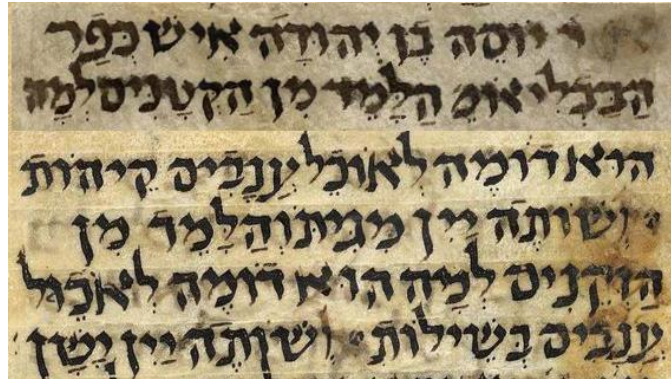 ר יוסה בן יהודה איש כפר
הבבלי אומ הלמד מן הקטנים למה
הוא דומה לאוכל ענבים קיהות
ושותה יין מגיתו והלמד מן
הזקנים למה הוא דומה לאכול
ענבים בשילות ושותה יין ישן